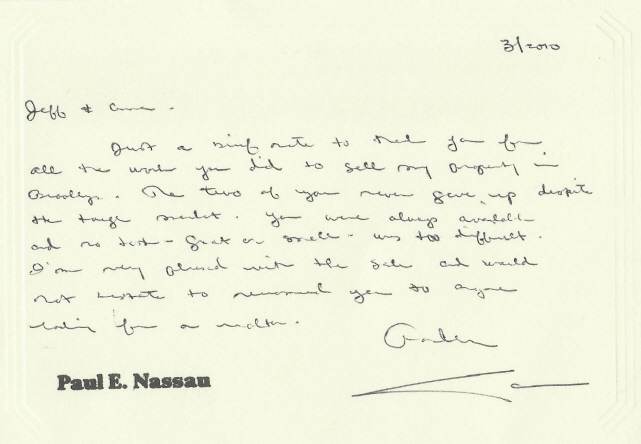 3/2010
Jeff & Anne.
Just a brief note to thank you for
all the work you did to sell my property in
Brooklyn. The two of you never gave up despite
the tough market. You were always available
and no task - great or small - was too difficult.
I'm very pleased with the sale and would
not hesitate to recommend you to anyone
looking for a realtor.
Paul E. Nassau